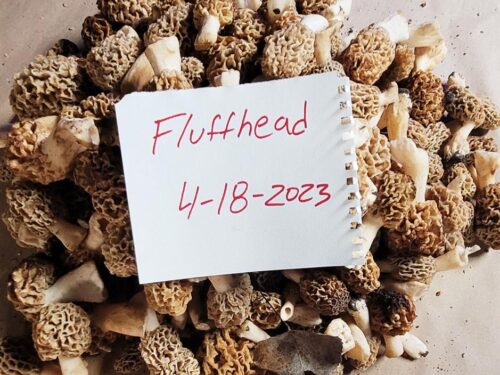 Fluffhead
4-18-2023